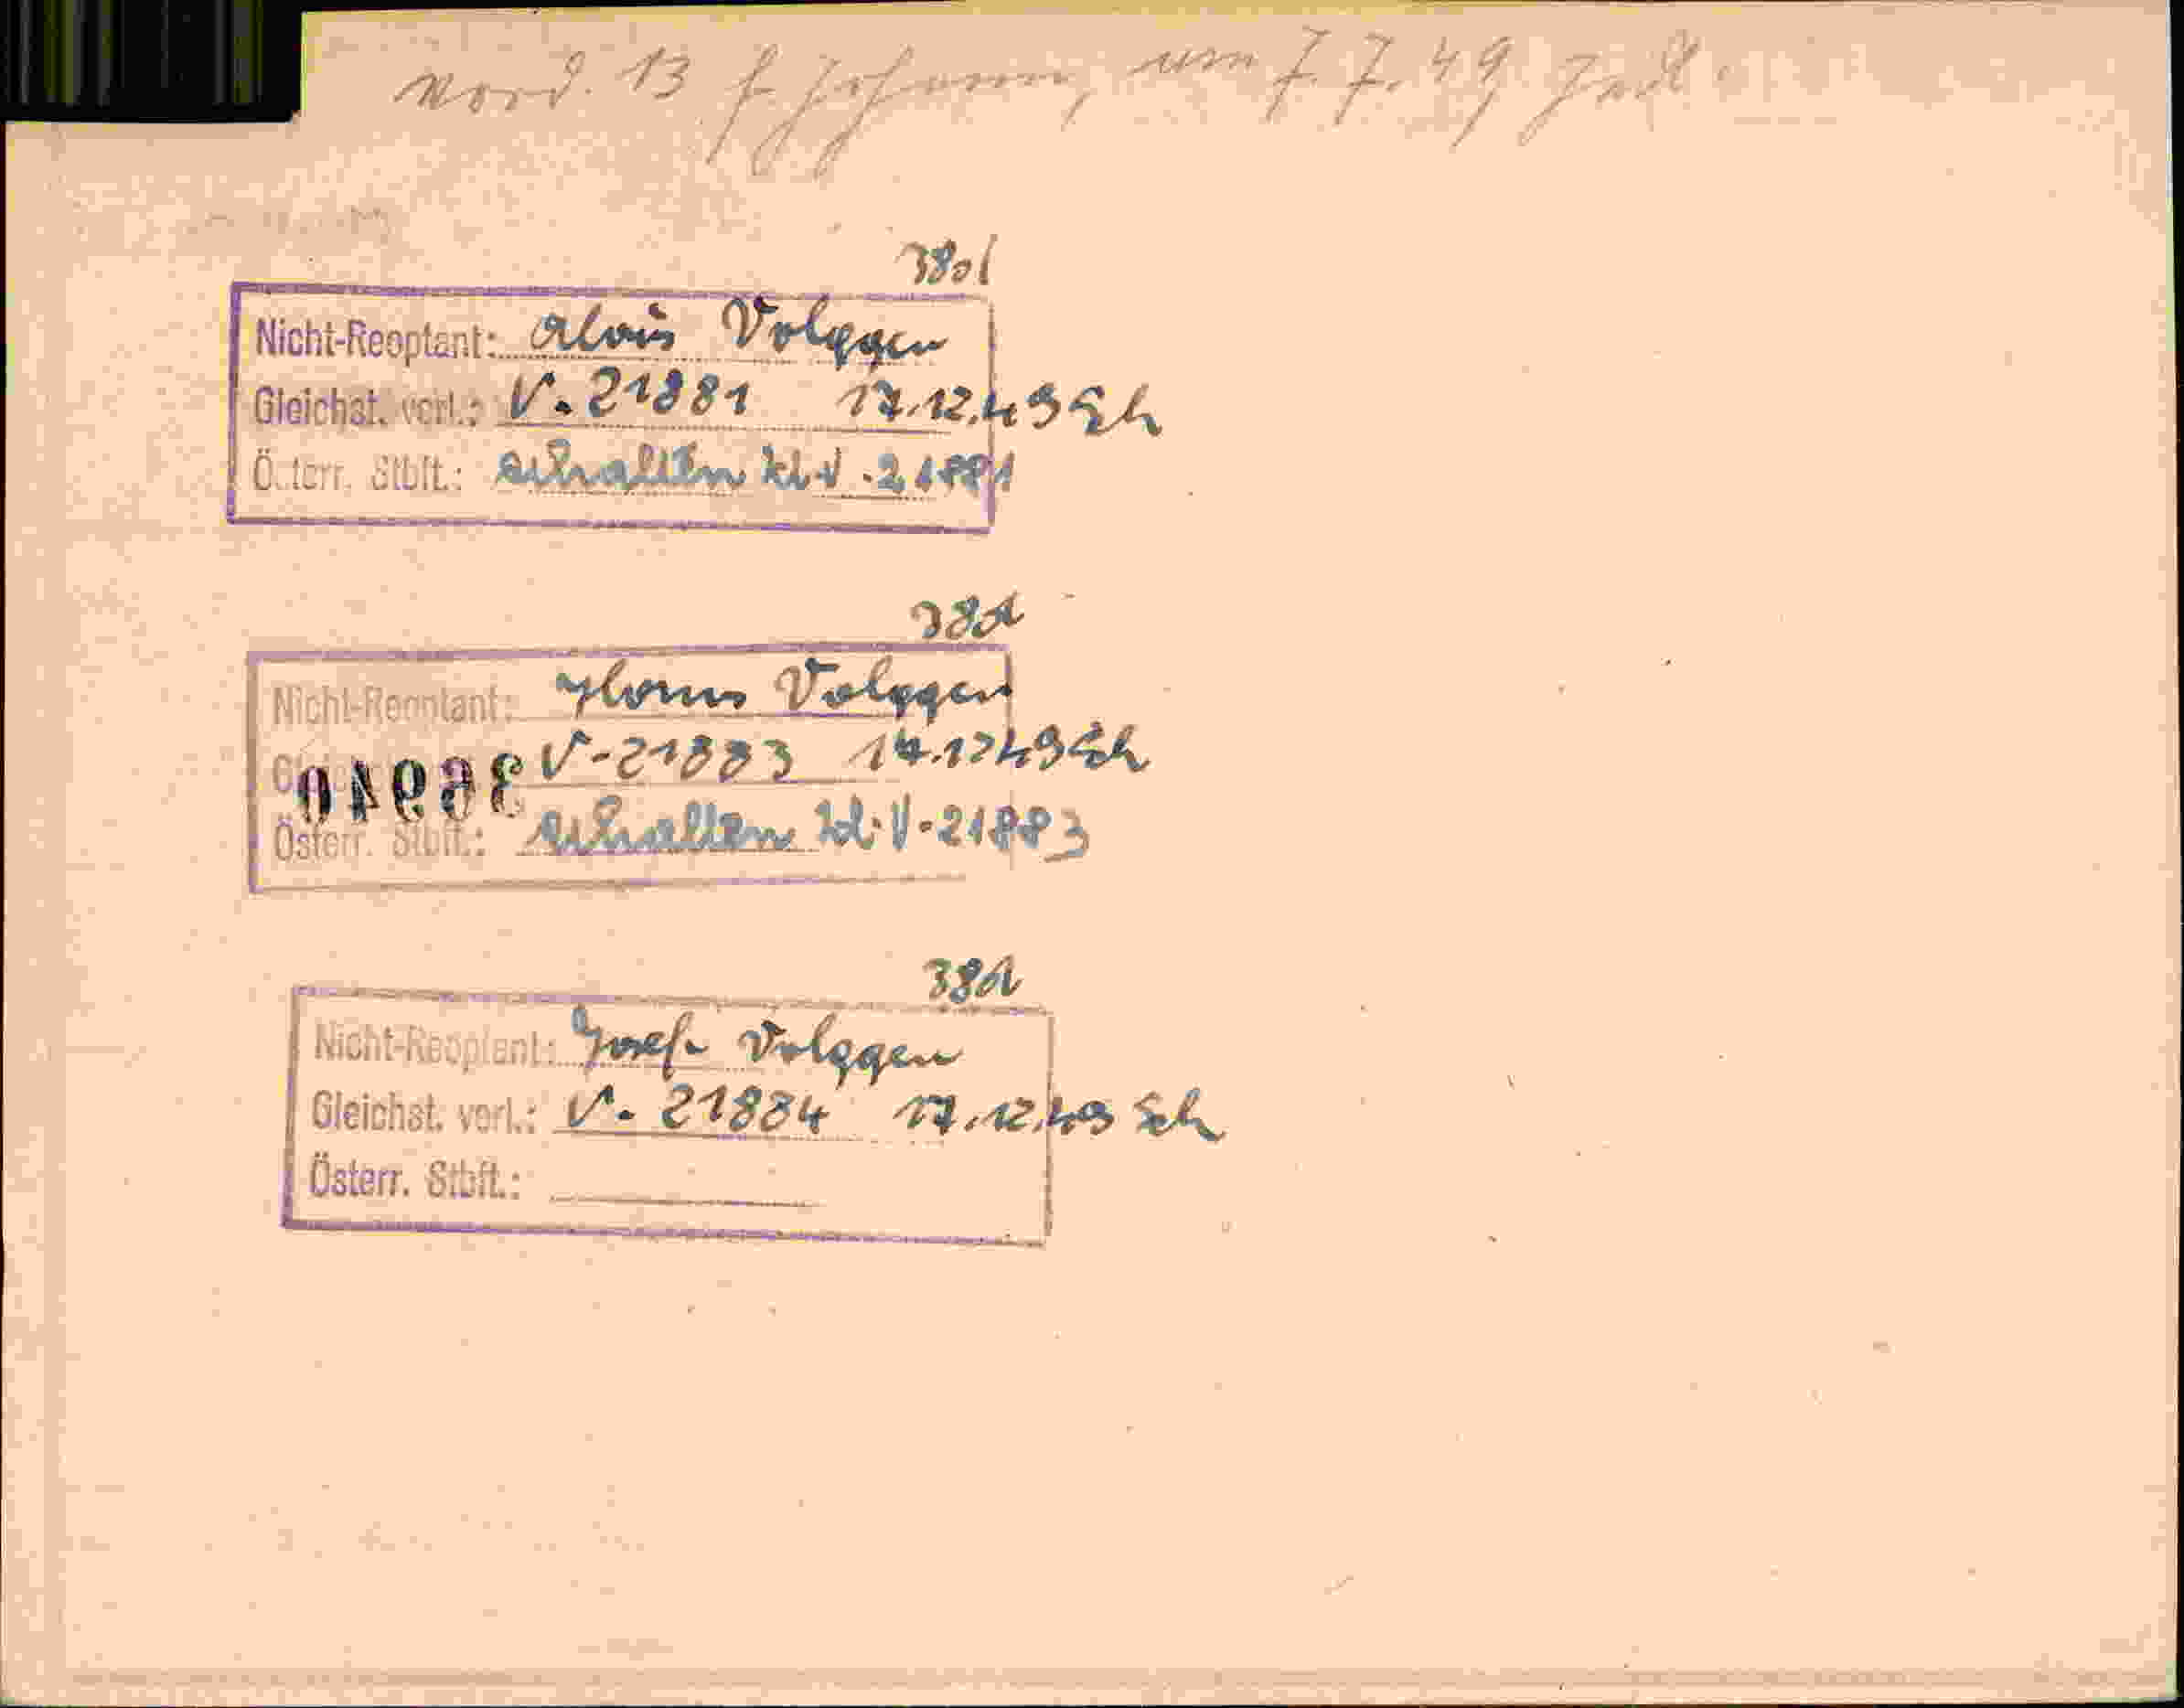 Vord. 13 f. Johann, um 7. 7. 49
Nicht-Reoptant: Alois Volgger
Gleichst. verl.: V-21881 17.12.49 Sch
Österr. Stbft.: erhalten Zl. V-21881
Nicht-Reoptant: Volgger
V-21883 17.12.49 Sch
36940
Österr. Stbft.: erhalten Zl. V-21883
Nicht-Reoptant: Josef Volgger
Gleichst. verl.: V-21884 17.12.49 Sch
Österr. Stbft.: